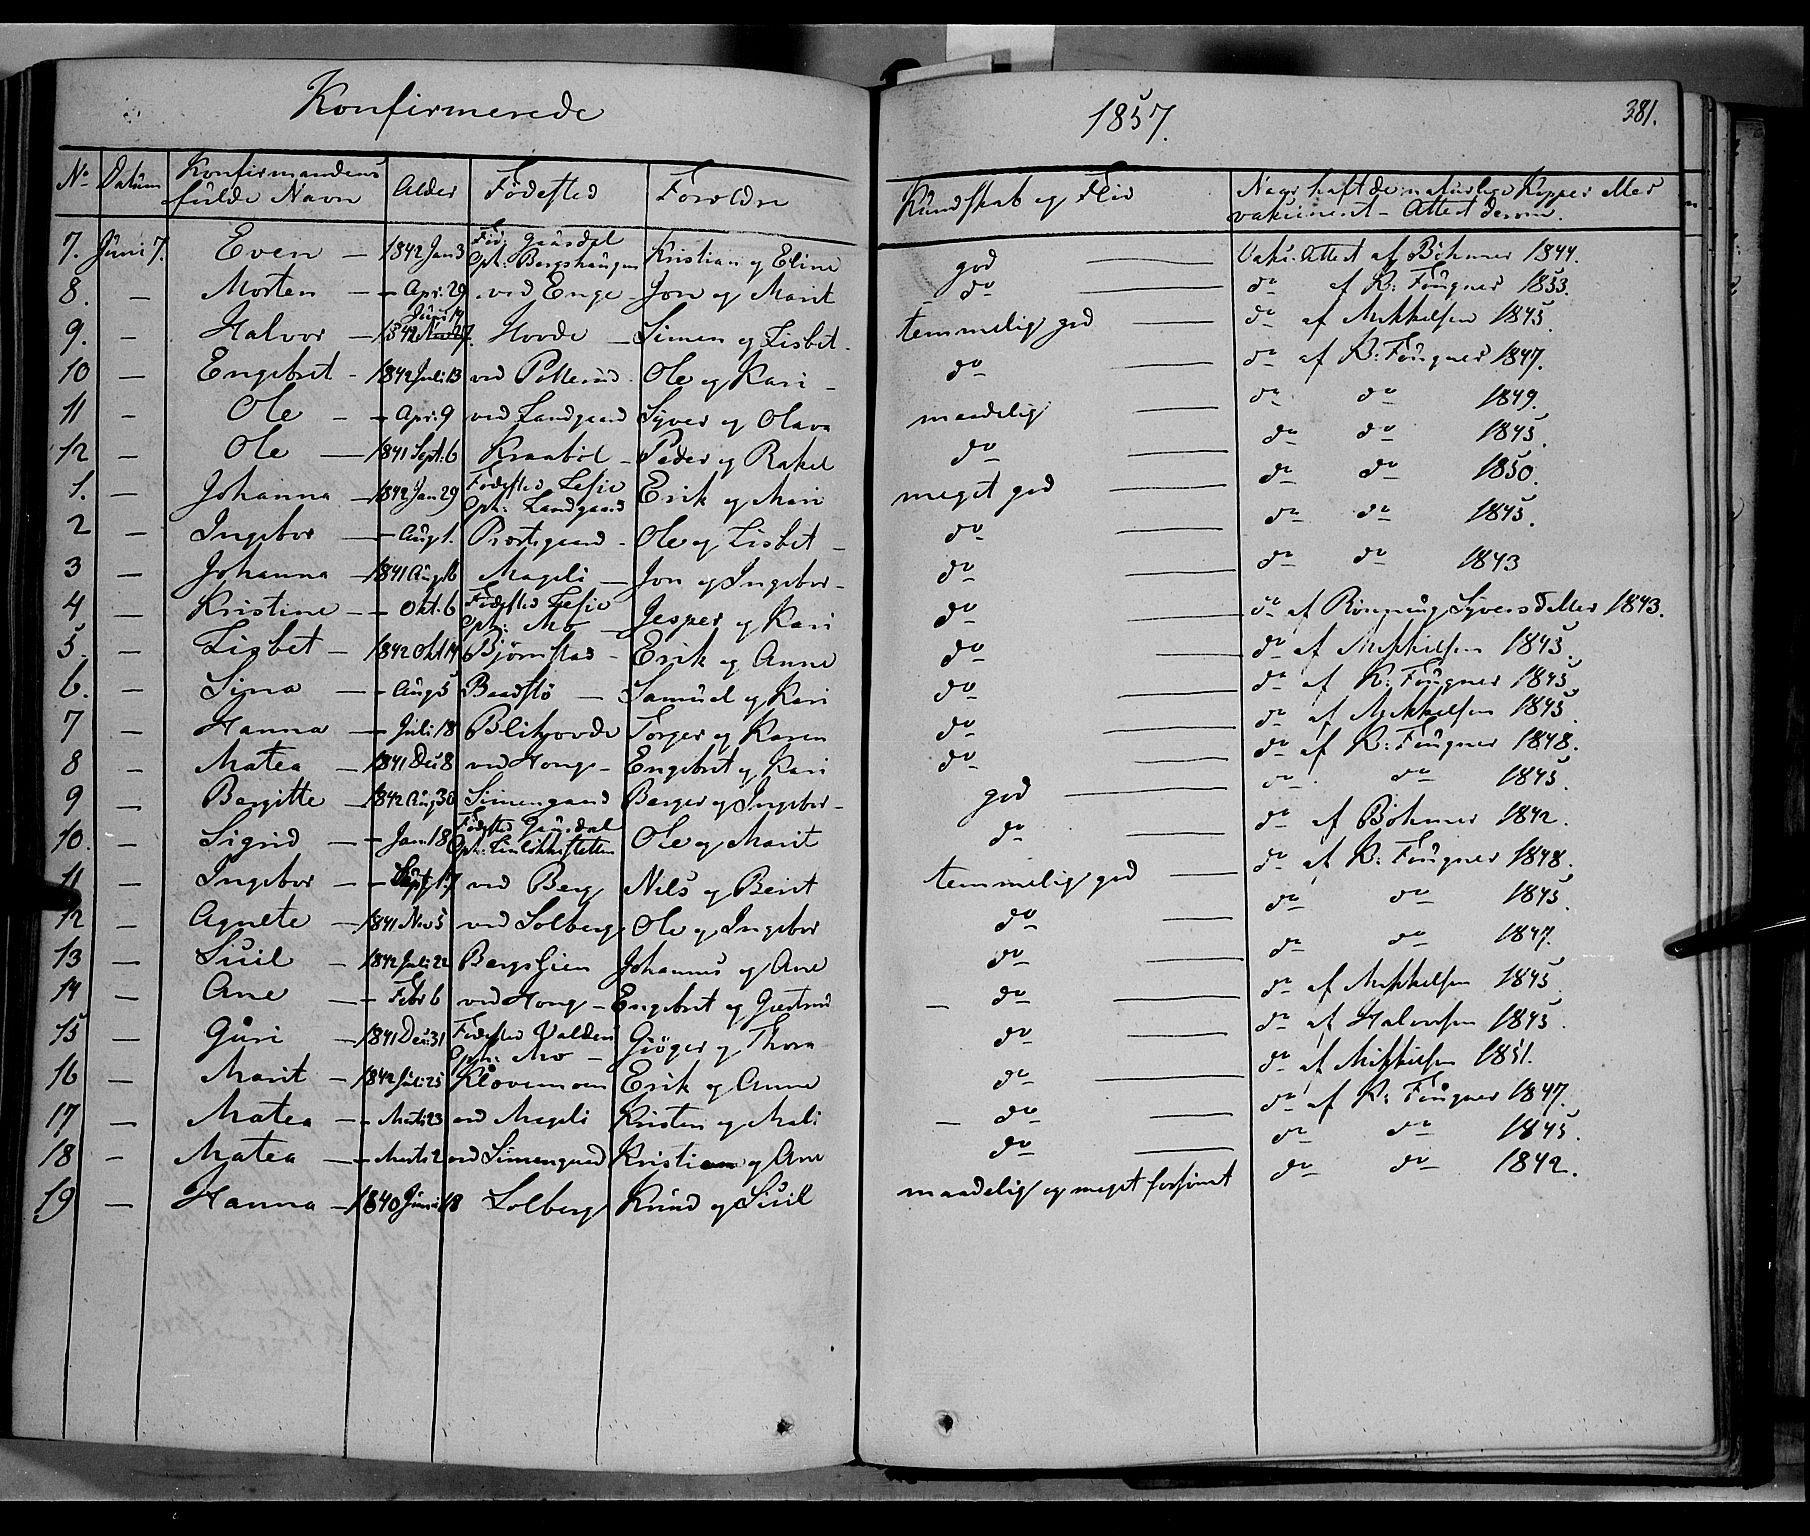 Konfirmerede
1857.
381.
No Datum Konfirmandens fulde Navn Alder Födested Foreldre Kundskab og Flid Naar haft de naturlige Kopper eller vakcineret - Attest derom.
7. Juni 7. Even - 1842 Jan 3 Föd. Gausdal Oph: Bergshaugen Kristian og Eline god Vakc. Attest af Böhmer 1844.
8. - Morten - - Apr. 29 ved Enge - Jon og Marit do do af K: Fougner 1853.
9. - Halvor - 1842 Juni 19 Hovde - Simen og Lisbet - temmelig god do af Mikkelsen 1845.
10 - Engebret - 1842 Juli 13 ved Pollerud - Ole og Kari - do do af K: Fougner 1847.
11 - Ole - - Apr. 9 ved Landgaard Syver og Olava maadelig do do 1849.
12 - Ole - 1841 Sept. 6 Kraaböl - Peder og Rakel do do do 1845.
1. - Johanna - 1842 Jan 29 Födested Lesje Oph: Landgaard Erik og Mari meget god do do 1850.
2 - Ingebor - - Aug 1. Prestegaard - Ole og Lisbet - do do do 1845.
3 - Johanna - 1841 Aug 16 Mageli - Jon og Ingebor - do do do 1843
4 - Kristine - - Okt. 6 Födested Lesje Oph: Mo - Jesper og Kari do do af Rönnaug Syversdatter 1843.
5. - Lisbet - 1842 Okt 14 Björnstad - Erik og Anne do do af Mikkelsen 1845.
6. - Sina - - Aug 5 Baadstö - Samuel og Kari do do af K: Fougner 1845
7 - Hanna - - Juli 18 Blikhovde Torger og Karen do do af Mikkelsen 1845.
8 - Matea - 1841 Dec 8 ved Hong - Engebret og Kari do do af K: Fougner 1848.
9 - Bergitte - 1842 Aug 30 Simengaard Berger og Ingebor - god do do 1845.
10. - Sigrid - - Jan. 18 Födested Gausdal Oph: Ole og Marit do do af Böhmer 1842.
11 - Ingebor - - Sept. 17 ved Berg Nils og Berit temmelig god do af K: Fougner 1848.
12 - Agnete - 1841 Nov 5 ved Solberg Ole og Ingebor do do do 1845.
13 - Siril - 1842 Juli 22 Johannes og Ane do do do 1847.
14 - Ane - - Febr 6 ved Hong - Engebret og Gjertrud - do do af Mikkelsen 1845
15 - Guri - 1841 Dec: 31 Födested Valders Oph: Mo - Giöger og Thora do do af Halvorsen 1845.
16 - Marit - 1842 Juli 25 Klövemoen Erik og Anne do do af Mikkelsen 1851.
17 - Matea - - Marts 23 ved Mageli Kristen og Mali - do do af K: Fougner 1847.
18 - Matea - - Marts 2 ved Simengaard Kristian og Ane do do do 1845.
19 - Hanna - 1840 Juni 18 Solberg Knud og Siril maadelig og meget forsömt do do 1842.